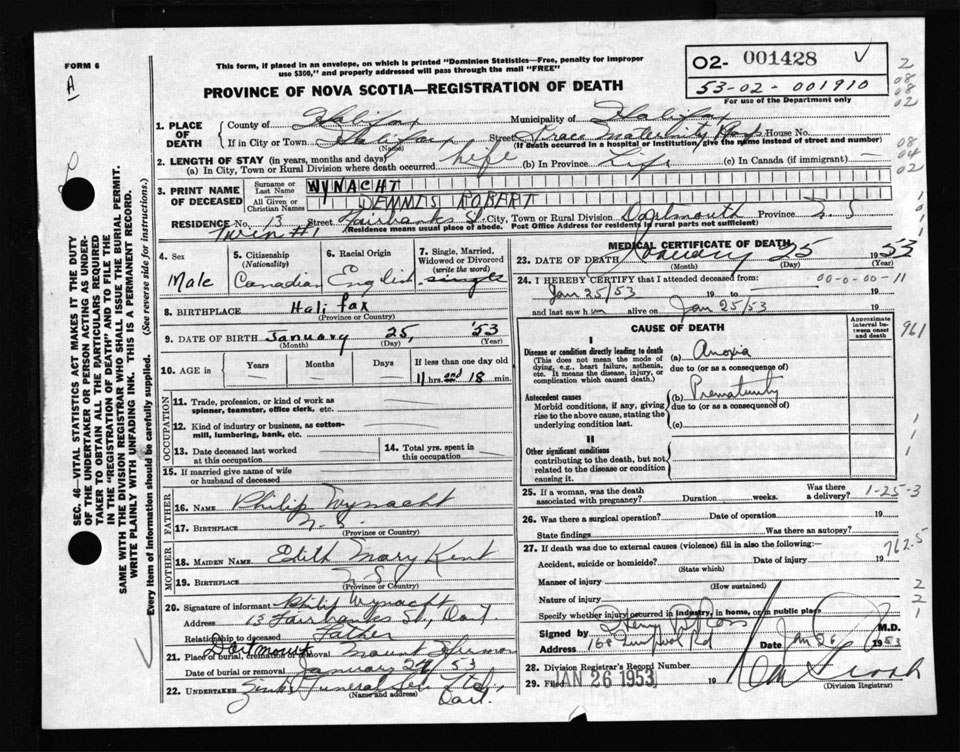 FORM 6
A
This form, if placed in an envelope, on which is printed "Dominion Statistics—Free, penalty for improper
use $300," and properly addressed will pass through the mail "FREE"
O2- 001428 V
53-02-001910
For use of the Department only
2
08
08
02
PROVINCE OF NOVA SCOTIA—REGISTRATION OF DEATH
1. PLACE OF DEATH
County of Halifax Municipality of Halifax
If in City or Town Halifax Street Grace Maternity Hosp. House No.
(Name) (If death occurred in a hospital or institution, give the name instead of street and number)
08
04
02
2. LENGTH OF STAY (in years, months and days)
(a) In City, Town or Rural Division where death occurred life (b) In Province Life (c) In Canada (if immigrant) —
3. PRINT NAME OF DECEASED
Surname or Last Name WYNACHT
All Given or Christian Names DENNIS ROBERT
RESIDENCE No. 13 Street Fairbanks St. City, Town or Rural Division Dartmouth Province N.S.
(Residence means usual place of abode. Post Office Address for residents in rural parts not sufficient)
Twin #1
4. Sex
Male
5. Citizenship
(Nationality)
Canadian
6. Racial Origin
English
7. Single, Married, Widowed or Divorced
(write the word)
single
8. BIRTHPLACE Halifax
(Province or Country)
9. DATE OF BIRTH January 25, '53
(Month) (Day) (Year)
10. AGE in Years Months Days If less than one day old
11 hrs. and 18 min.
OCCUPATION
11. Trade, profession, or kind of work as
spinner, teamster, office clerk, etc.
12. Kind of industry or business, as cotton-
mill, lumbering, bank, etc.
13. Date deceased last worked
at this occupation
14. Total yrs. spent in
this occupation
15. If married give name of wife
or husband of deceased
FATHER
16. NAME Philip Wynacht
17. BIRTHPLACE N.S.
(Province or Country)
MOTHER
18. MAIDEN NAME Edith Mary Kent
19. BIRTHPLACE N.S.
(Province or Country)
20. Signature of informant Philip Wynacht
Address 13 Fairbanks St., Dart.
Relationship to deceased Father
Dartmouth
21. Place of burial, cremation or removal Mount Hermon
Date of burial or removal January 26/53
22. UNDERTAKER Funeral Ser. Ltd.,
(Name and address) Dart.
MEDICAL CERTIFICATE OF DEATH
23. DATE OF DEATH January 25 1953
(Month) (Day) (Year)
24. I HEREBY CERTIFY that I attended deceased from: 00-0-00-11
Jan 25/53 19 to 19
and last saw him alive on Jan 25/53 19
CAUSE OF DEATH
Approximate interval between onset and death
961
I
Disease or condition directly leading to death
(This does not mean the mode of
dying, e.g., heart failure, asthenia,
etc. It means the disease, injury, or
complication which caused death.)
(a) Anoxia
due to (or as a consequence of)
Antecedent causes
Morbid conditions, if any, giving
rise to the above cause, stating the
underlying condition last.
(b) Prematurity
due to (or as a consequence of)
(c)
II
Other significant conditions
contributing to the death, but not
related to the disease or condition
causing it.
1
1
1
25. If a woman, was the death
associated with pregnancy? Duration weeks. Was there
a delivery? 1-25-3
26. Was there a surgical operation? Date of operation 19
State findings Was there an autopsy?
27. If death was due to external causes (violence) fill in also the following:—
Accident, suicide or homicide? Date of injury 19
(State which)
762-5
Manner of injury
(How sustained)
Nature of injury
Specify whether injury occurred in industry, in home, or in public place
2
2
1
Signed by Henry Ross M.D.
Address 168 Liverpool Rd Date Jan 26 1953
28. Division Registrar's Record Number
29. Filed JAN 26 1953 19
(Division Registrar)
SEC. 46—VITAL STATISTICS ACT MAKES IT THE DUTY
OF THE UNDERTAKER OR PERSON ACTING AS UNDER-
TAKER TO OBTAIN ALL THE PARTICULARS REQUIRED
IN THE "REGISTRATION OF DEATH" AND TO FILE THE
SAME WITH THE DIVISION REGISTRAR WHO SHALL ISSUE THE BURIAL PERMIT.
WRITE PLAINLY WITH UNFADING INK. THIS IS A PERMANENT RECORD.
Every item of information should be carefully supplied. (See reverse side for instructions.)